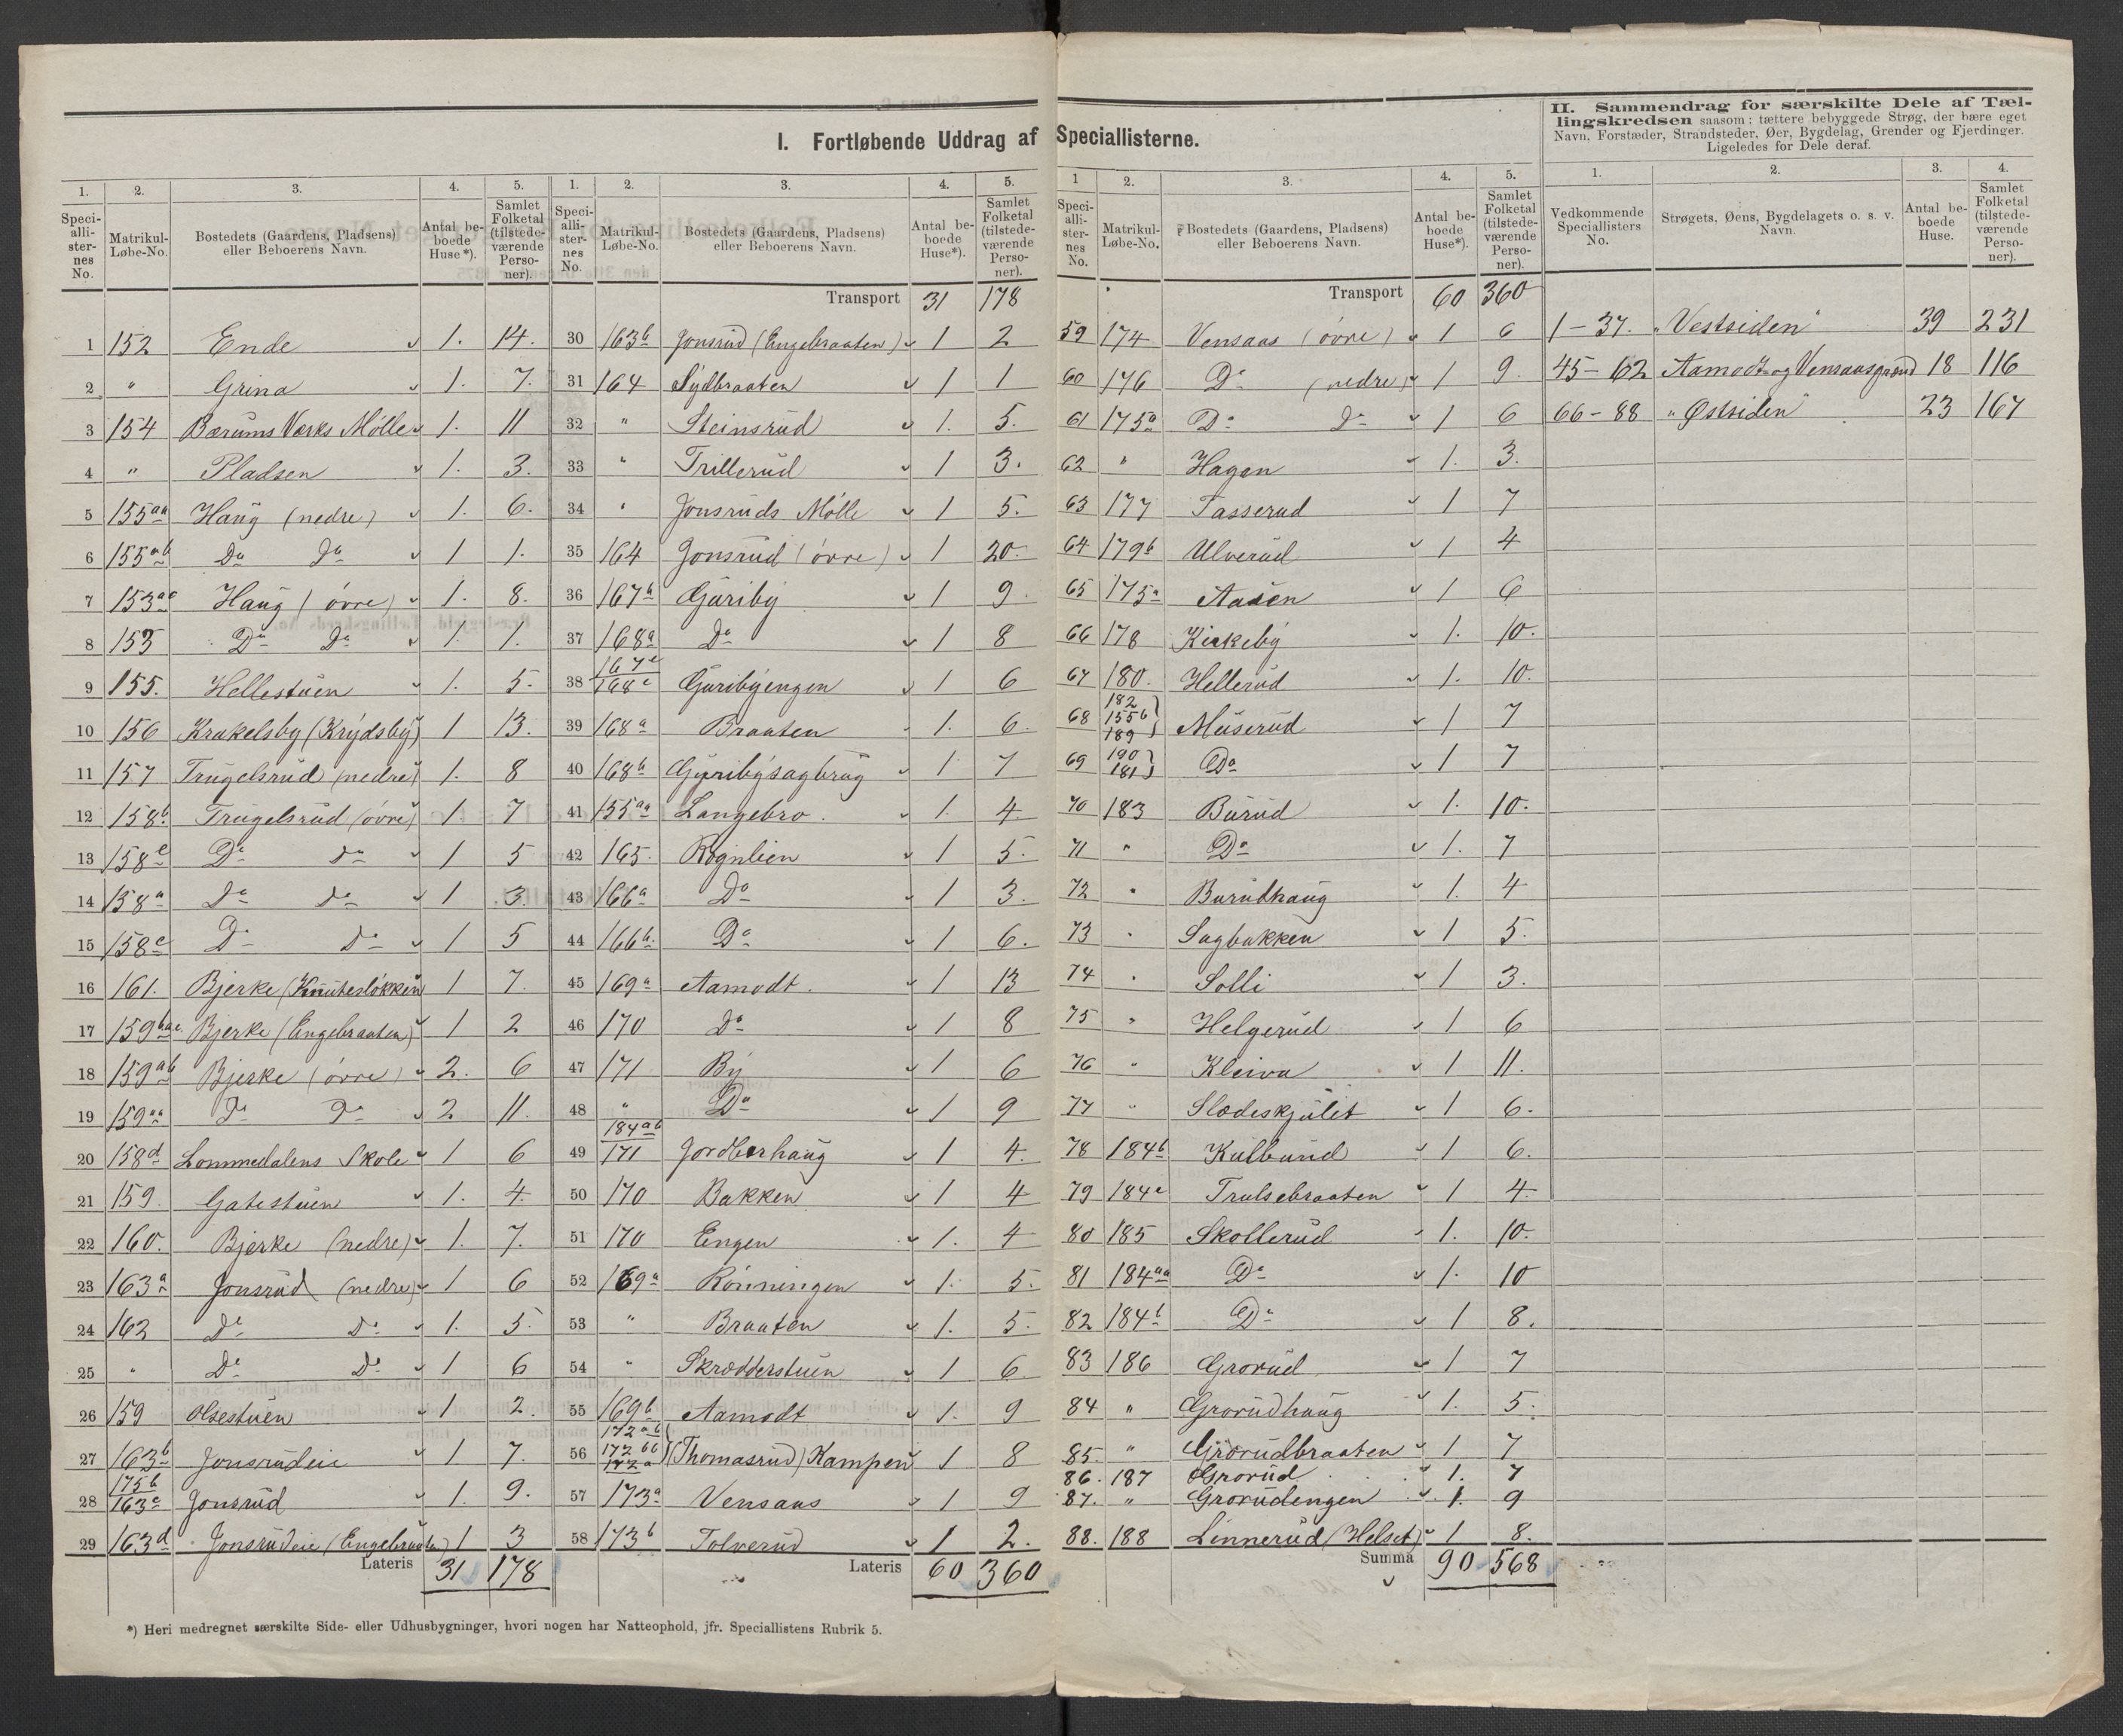 I. Fortløbende Uddrag af Speciallisterne.
1. 2. 3. 4. 5.
Speci-alli-ster-nes No. Matrikul-Løbe-No. Bostedets (Gaardens, Pladsens) eller Beboerens Navn. Antal be-boede Huse*). Samlet Folketal (tilstede-værende Perso-ner).
1 152 Ende 1. 14.
2 " Grina 1. 7.
3 154 Bærums Værks Mølle 1. 11
4 " Pladsen 1. 3.
5 155aa Haug (nedre) 1. 6.
6 155ab Do Do 1 1.
7 153ac Haug (øvre) 1. 8.
8 153 Do Do 1. 1.
9 155. Hellestuen 1. 5.
10 156 Krakelsby (Krydsby) 1 13.
11 157 Trugelsrud (nedre) 1. 8
12 158b. Trugelsrud (øvre) 1 7
13 158c Do do 1 5
14 158a Do do 1 3.
15 158e Do Do 1 5
16 161. Bjerke (Knuteslökken 1 7.
17 159bac Bjerke (Engebraaten) 1 2
18 159ab Bjerke (øvre) 2. 6
19 159aa Do Do 2 11.
20 158d Lommedalens Skole 1 6
21 159. Gatestuen 1. 4.
22 160. Bjerke (nedre) 1. 7.
23 163a Jonsrud (nedre) 1 6
24 162 Do Do 1. 5.
25 " Do Do 1 6
26 159 Olsestuen 1 2.
27 163b Jonsrudeie 1 7.
28 175b 163c Jonsrud 1. 9.
29 163d Jonsrudeie (Engebraaten) 1 3
Lateris 31 178
1. 2. 3. 4. 5.
Speci-alli-ster-nes No. Matrikul-Løbe-No. Bostedets (Gaardens, Pladsens) eller Beboerens Navn. Antal be-boede Huse*). Samlet Folketal (tilstede-værende Perso-ner).
Transport 31 178
30 163b Jonsrud (Engebraaten) 1 2
31 164 Sydbraaten 1 1
32 " Steinsrud 1. 5.
33 " Trillerud 1 3.
34 " Jonsruds Mølle 1 5.
35 164 Jonsrud (øvre) 1 20.
36 167b Guriby 1 9.
37 168a Do 1 8
38 167c 168c Guribyengen 1 6
39 168a Braaten 1. 6.
40 168b Guribysagbrug 1 7
41 155aa Langebro. 1. 4.
42 165. Rognlien 1 5.
43 166a Do 1 3.
44 166b. Do 1 6.
45 169a Aamodt. 1 13
46 170 Do 1 8
47 171 By 1 6
48 " Do 1 9
49 184ab 171 Jordbærhaug 1 4.
50 170 Bakken 1 4
51 170 Engen 1. 4
52 169a Rönningen 1. 5.
53 " Braaten 1. 5.
54 " Skrædderstuen 1 6.
55 169b Aamodt 1. 9
56 172ab 172bb 172a (Thomasrud) Kampen 1 8
57 173a Vensaas 1 9
58 173b Tolverud 1 2.
Lateris 60 360
1 2. 3. 4. 5.
Speci-alli-ster-nes No. Matrikul-Løbe-No. Bostedets (Gaardens, Pladsens) eller Beboerens Navn. Antal be-boede Huse*). Samlet Folketal (tilstede-værende Perso-ner).
Transport 60 360
59 174 Vensaas (øvre) 1 6
60 176 Do (nedre) 1 9.
61 175a Do Do 1 6
62 " Hagen 1. 3.
63 177 Tasserud 1 7
64 179b Ulverud 1 4
65 175a Aasen 1 6
66 178 Kirkeby 1. 10.
67 180. Hellerud 1. 10.
68 182 155b 189 Muserud 1 7
69 190 181 Do 1 7
70 183 Burud 1. 10.
71 " Do 1. 7
72 " Burudhaug 1. 4
73 " Sagbakken 1 5.
74 " Solli 1 3.
75 " Helgerud 1 6
76 " Kleiva 1 11.
77 " Slædeskjulet 1 6.
78 184b Kulbund 1 6.
79 184c Trulsebraaten 1 4.
80 185 Skollerud 1. 10.
81 184aa Do 1. 10
82 184b Do 1 8.
83 186 Grorud 1 7
84 " Grorudhaug 1. 5.
85. " Grorudbraaten 1 7
86. 187 Grorud 1. 7
87. " Grorudengen 1. 9
88. 188 Linnerud (Helset) 1 8.
Summa 90 568
II. Sammendrag for særskilte Dele af Tæl-
lingskredsen saasom: tættere bebyggede Strøg, der bære eget
Navn, Forstæder, Strandsteder, Øer, Bygdelag, Grender og Fjerdinger.
Ligeledes for Dele deraf.
1. 2. 3. 4.
Vedkommende Speciallisters No. Strøgets, Øens, Bygdelagets o. s. v. Navn. Antal be-boede Huse. Samlet Folketal (tilstede-værende Perso-ner).
1-37. "Vestsiden" 39 231
45-62 Aamodt- og Vensaasgrænd 18 116
66-88 "Østsiden" 23 167
*) Heri medregnet særskilte Side- eller Udhusbygninger, hvori nogen har Natteophold, jfr. Speciallistens Rubrik 5.